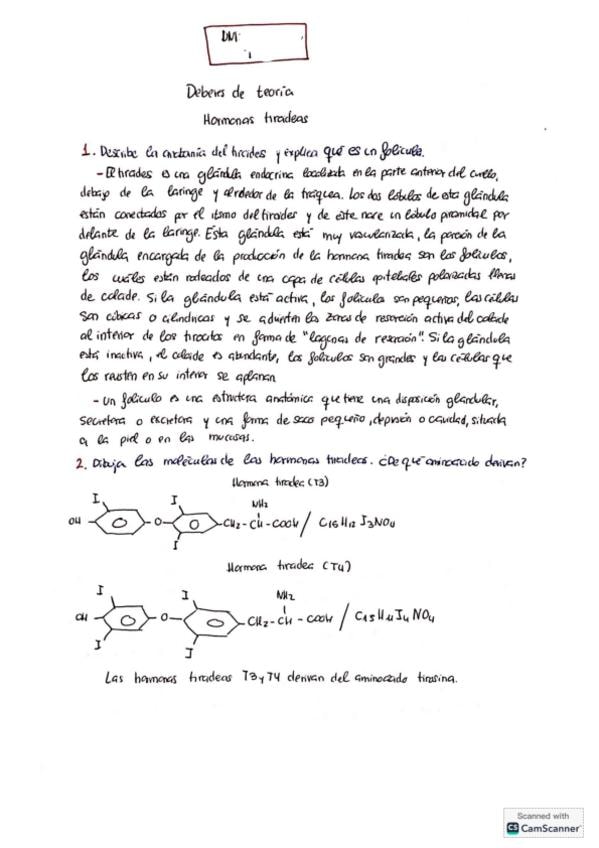 DM:
Deberes de teoría
Hormonas tiroideas
1. Describe la anatomía del tiroides y explica qué es un folículo.
- El tiroides es una glándula endocrina localizada en la parte anterior del cuello,
debajo de la laringe y alrededor de la tráquea. Los dos lóbulos de esta glándula
están conectados por el istmo del tiroides y de este nace un lóbulo piramidal por
delante de la laringe. Esta glándula está muy vascularizada, la porción de la
glándula encargada de la producción de la hormona tiroidea son los folículos,
los cuáles están rodeados de una capa de células epiteliales polarizadas llenas
de coloide. Si la glándula está activa, los folículos son pequeños, las células
son cúbicas o cilíndricas y se advierten las zonas de resorción activa del coloide
al interior de los tirocitos en forma de "lagunas de resorción". Si la glándula
está inactiva, el coloide es abundante, los folículos son grandes y las células que
los revisten en su interior se aplanan
- Un folículo es una estructura anatómica que tiene una disposición glandular,
secretora o excretora y una forma de saco pequeño, depresión o cavidad, situada
a la piel o en las mucosas.
2. Dibuja las moléculas de las hormonas tiroideas. ¿De qué aminoácido derivan?
Hormona tiroidea (T3)
I I NH2
OH -O- -CH2-CH-COOH / C15H12 I3NO4
I
Hormona tiroidea (T4)
I I NH2
OH -O- -CH2-CH-COOH / C15H11I4NO4
I I
Las hormonas tiroideas T3 y T4 derivan del aminoácido tirosina.
Scanned with
CS CamScanner